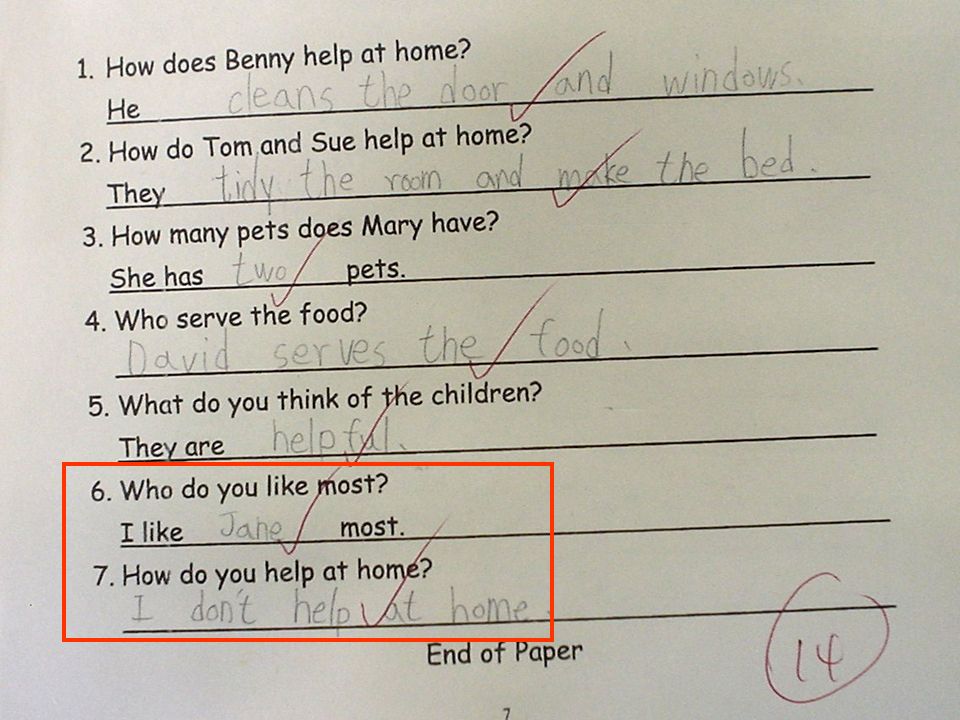 1. How does Benny help at home?
He cleans the door and windows.
2. How do Tom and Sue help at home?
They tidy the room and make the bed.
3. How many pets does Mary have?
She has two pets.
4. Who serve the food?
David serves the food.
5. What do you think of the children?
They are helpful.
6. Who do you like most?
I like Jane most.
7. How do you help at home?
I don't help at home.
End of Paper
14
7